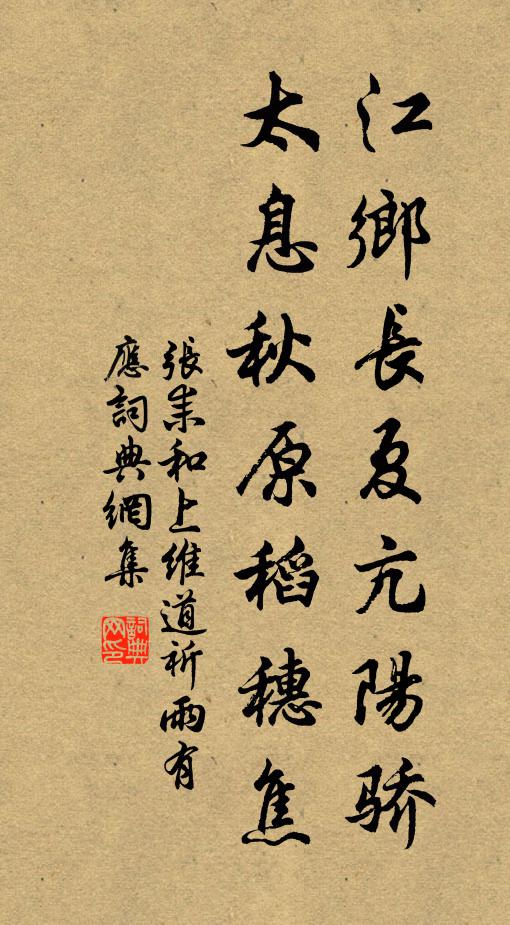 江鄉長夏亢陽骄
太息秋原稻穗焦
張耒和上維道祈雨有
應詞典網集
詞典网印